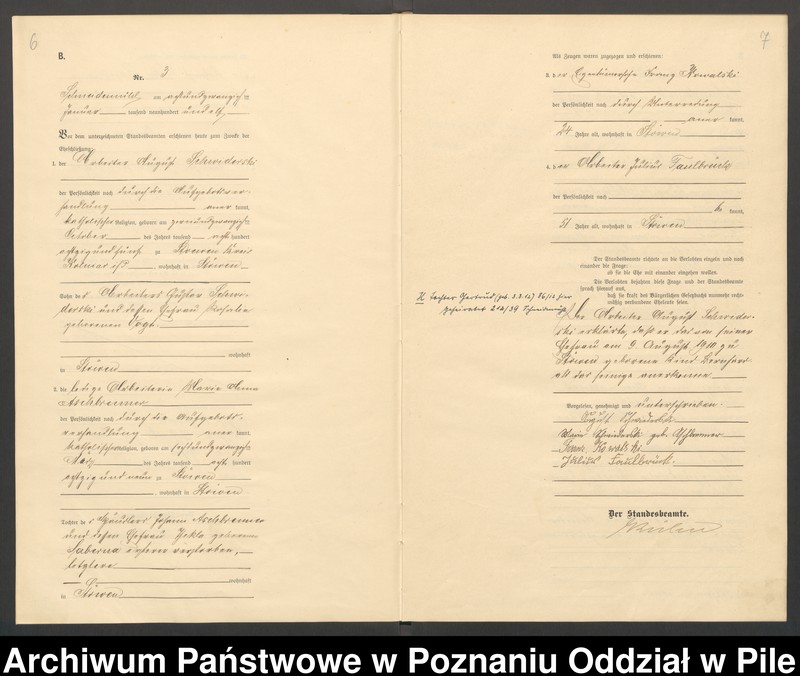 6
B.
Nr. 3
Schneidemühl, am achtundzwanzigsten
Januar tausend neunhundert und elf.
Vor dem unterzeichneten Standesbeamten erschienen heute zum Zwecke der
Eheschließung:
1. der Arbeiter August Schwiderski
der Persönlichkeit nach durch die Aufgebotsver-
handlung aner kannt,
katholischer Religion, geboren am zweiundzwanzigsten
October des Jahres tausend acht hundert
achtzigundfünf zu Stöwen Kreis
Kolmar i/P, wohnhaft in Stöwen
Sohn des Arbeiters Gustav Schwi-
derski und dessen Ehefrau Rosalie
geborenen Voigt.
wohnhaft
in Stöwen
2. die ledige Arbeiterin Maria Anna
Aschbrenner
der Persönlichkeit nach durch die Aufgebots-
verhandlung aner kannt,
katholischer Religion, geboren am sechsundzwanzigsten
März des Jahres tausend acht hundert
achtzigundneun zu Stöwen
, wohnhaft in Stöwen
Tochter des Häuslers Johann Aschbrenner
und dessen Ehefrau Thekla geborenen
ersterer verstorben,
letztere
wohnhaft
in Stöwen
7
Als Zeugen waren zugezogen und erschienen:
3. der Eigentümersohn Franz Kowalski
der Persönlichkeit nach durch Unterredung
aner kannt,
24 Jahre alt, wohnhaft in Stöwen
4. der Arbeiter Julius Faulbrück
der Persönlichkeit nach
be kannt,
51 Jahre alt, wohnhaft in Stöwen
Der Standesbeamte richtete an die Verlobten einzeln und nach
einander die Frage:
ob sie die Ehe mit einander eingehen wollen.
Die Verlobten bejahten diese Frage und der Standesbeamte
sprach hierauf aus,
daß sie kraft des Bürgerlichen Gesetzbuchs nunmehr recht-
mäßig verbundene Eheleute seien.
H. Tochter Gertrud (geb. 3.8.12) 86/12 hier
geheiratet 212/34 Schneidemühl
Der Arbeiter August Schwider-
ski erklärte, daß er das von seiner
Ehefrau am 9. August 1910 zu
Stöwen geborene Kind Bernhard
als das seinige anerkenne
Vorgelesen, genehmigt und unterschrieben.
August Schwiderski
Maria Schwiderski geb. Aschbrenner
Franz Kowalski
Julius Faulbrück.
Der Standesbeamte.
Archiwum Państwowe w Poznaniu Oddział w Pile